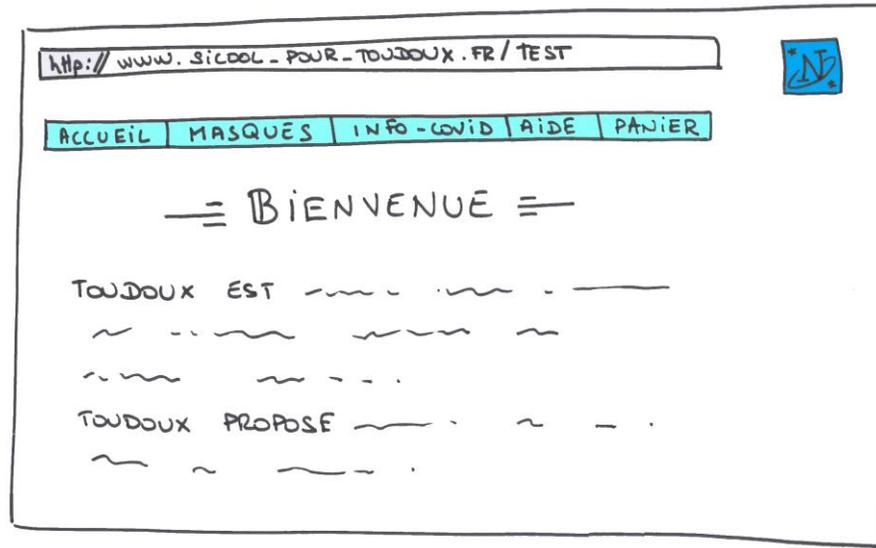 http:// WWW.SICOOL-POUR-TOUDOUX.FR/TEST
N
ACCUEIL MASQUES INFO-COVID AIDE PANIER
BIENVENUE
TOUDOUX EST
TOUDOUX PROPOSE